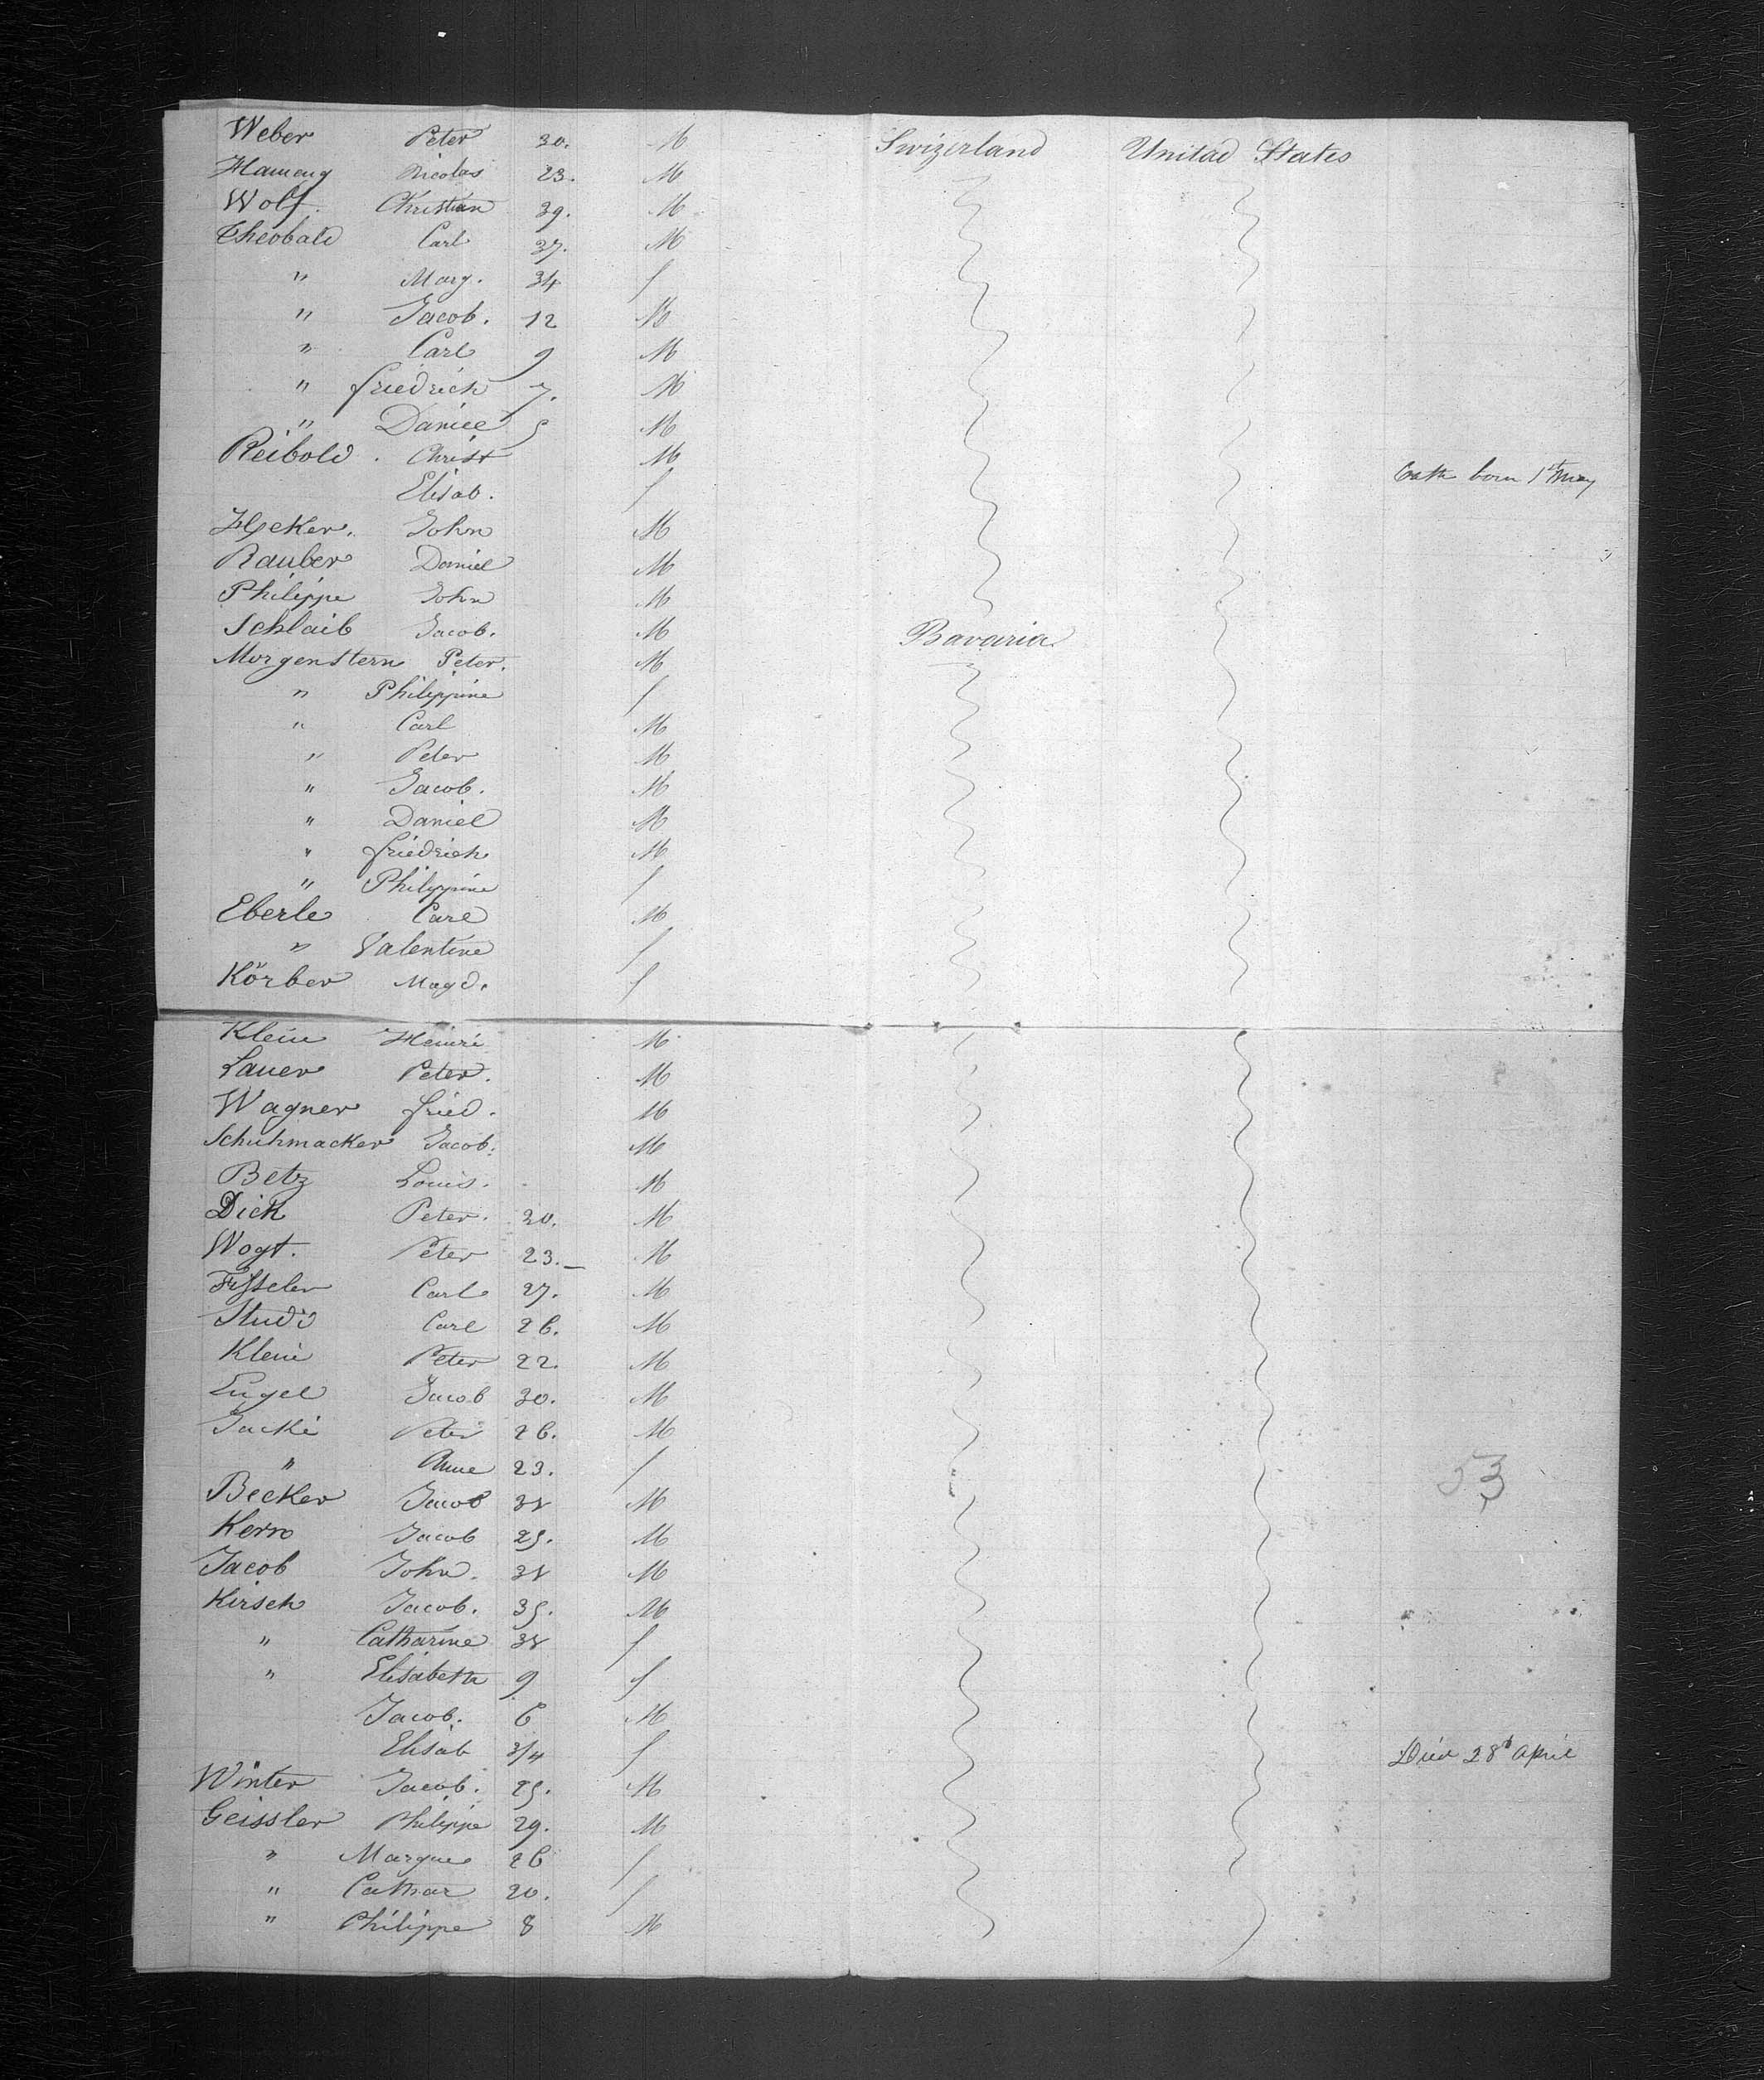 Weber Peter 30. M Swizerland Unitad States
Hameny Nicolas 23. M
Wolf. Christian 39. M
Theobald Carl 37. M
" Marg. 34 f
" Jacob. 12 M
" Carl 9 M
" friedrich 7. M
" Daniel 5 M
Reibold. Christ M
Elisab. f born 1st May
John M
Rauber Daniel M
Philippe John M
Schlaib Jacob. M Bavaria
Morgenstern Peter. M
" Philippine f
" Carl M
" Peter M
" Jacob. M
" Daniel M
" friedrich M
" Philippine f
Eberle Carl M
" Valentine f
Körber Magd. f
Klein Heinri M
Lauer Peter. M
Wagner fried. M
Schuhmacker Jacob. M
Betz Louis. M
Dick Peter. 20. M
Wogt. Peter 23. M
Carl 27. M
Studi Carl 26. M
Klein Peter 22. M
Engel Jacob 30. M
Jacki Peter 26. M
" Anne 23. f
Becker Jacob 34 M
53
Kern Jacob 25. M
Jacob John. 34 M
Kirsch Jacob. 35. M
" Catharine 34 f
" Elisabeth 9 f
Jacob. 6 M
Elisab 3/4 f Died 28 April
Winter Jacob. 25. M
Geissler Philippe 29. M
" Margue 26 f
" Cathar 20. f
" Philippe 8 M